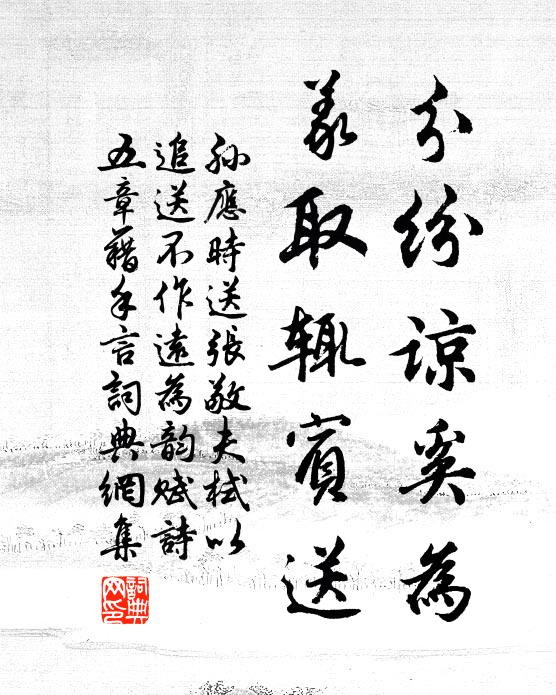 分紛諒奚為
義取輒賓送
孫應時送張敬夫栻以
追送不作遠為韵賦詩
五章藉手言詞典網集
詞典